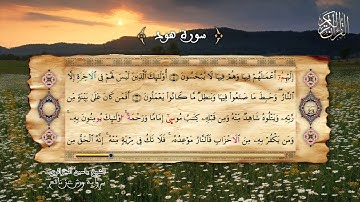 سورة هود
القرآن الكريم
إِلَيْهِمُۥٓ أَعْمَٰلَهُمْ فِيهَا وَهُمْ فِيهَا لَا يُبْخَسُونَ أُوْلَٰٓئِكَ ٱلَّذِينَ لَيْسَ لَهُمْ فِى ٱلَاخِرَةِ إِلَّا
ٱلنَّارُ وَحَبِطَ مَا صَنَعُواْ فِيهَا وَبَٰطِلٌ مَّا كَانُواْ يَعْمَلُونَ أَفَمَن كَانَ عَلَىٰ بَيِّنَةٍ مِّن
رَّبِّهِۦ وَيَتْلُوهُ شَاهِدٌ مِّنْهُ وَمِن قَبْلِهِۦ كِتَٰبُ مُوسَىٰٓ إِمَامًا وَرَحْمَةً اُوْلَٰٓئِكَ يُومِنُونَ بِهِۦ
وَمَن يَكْفُرْ بِهِۦ مِنَ ٱلَاحْزَابِ فَٱلنَّارُ مَوْعِدُهُۥ فَلَا تَكُ فِى مِرْيَةٍ مِّنْهُ إِنَّهُ ٱلْحَقُّ مِن
برواية ورش عن نافع